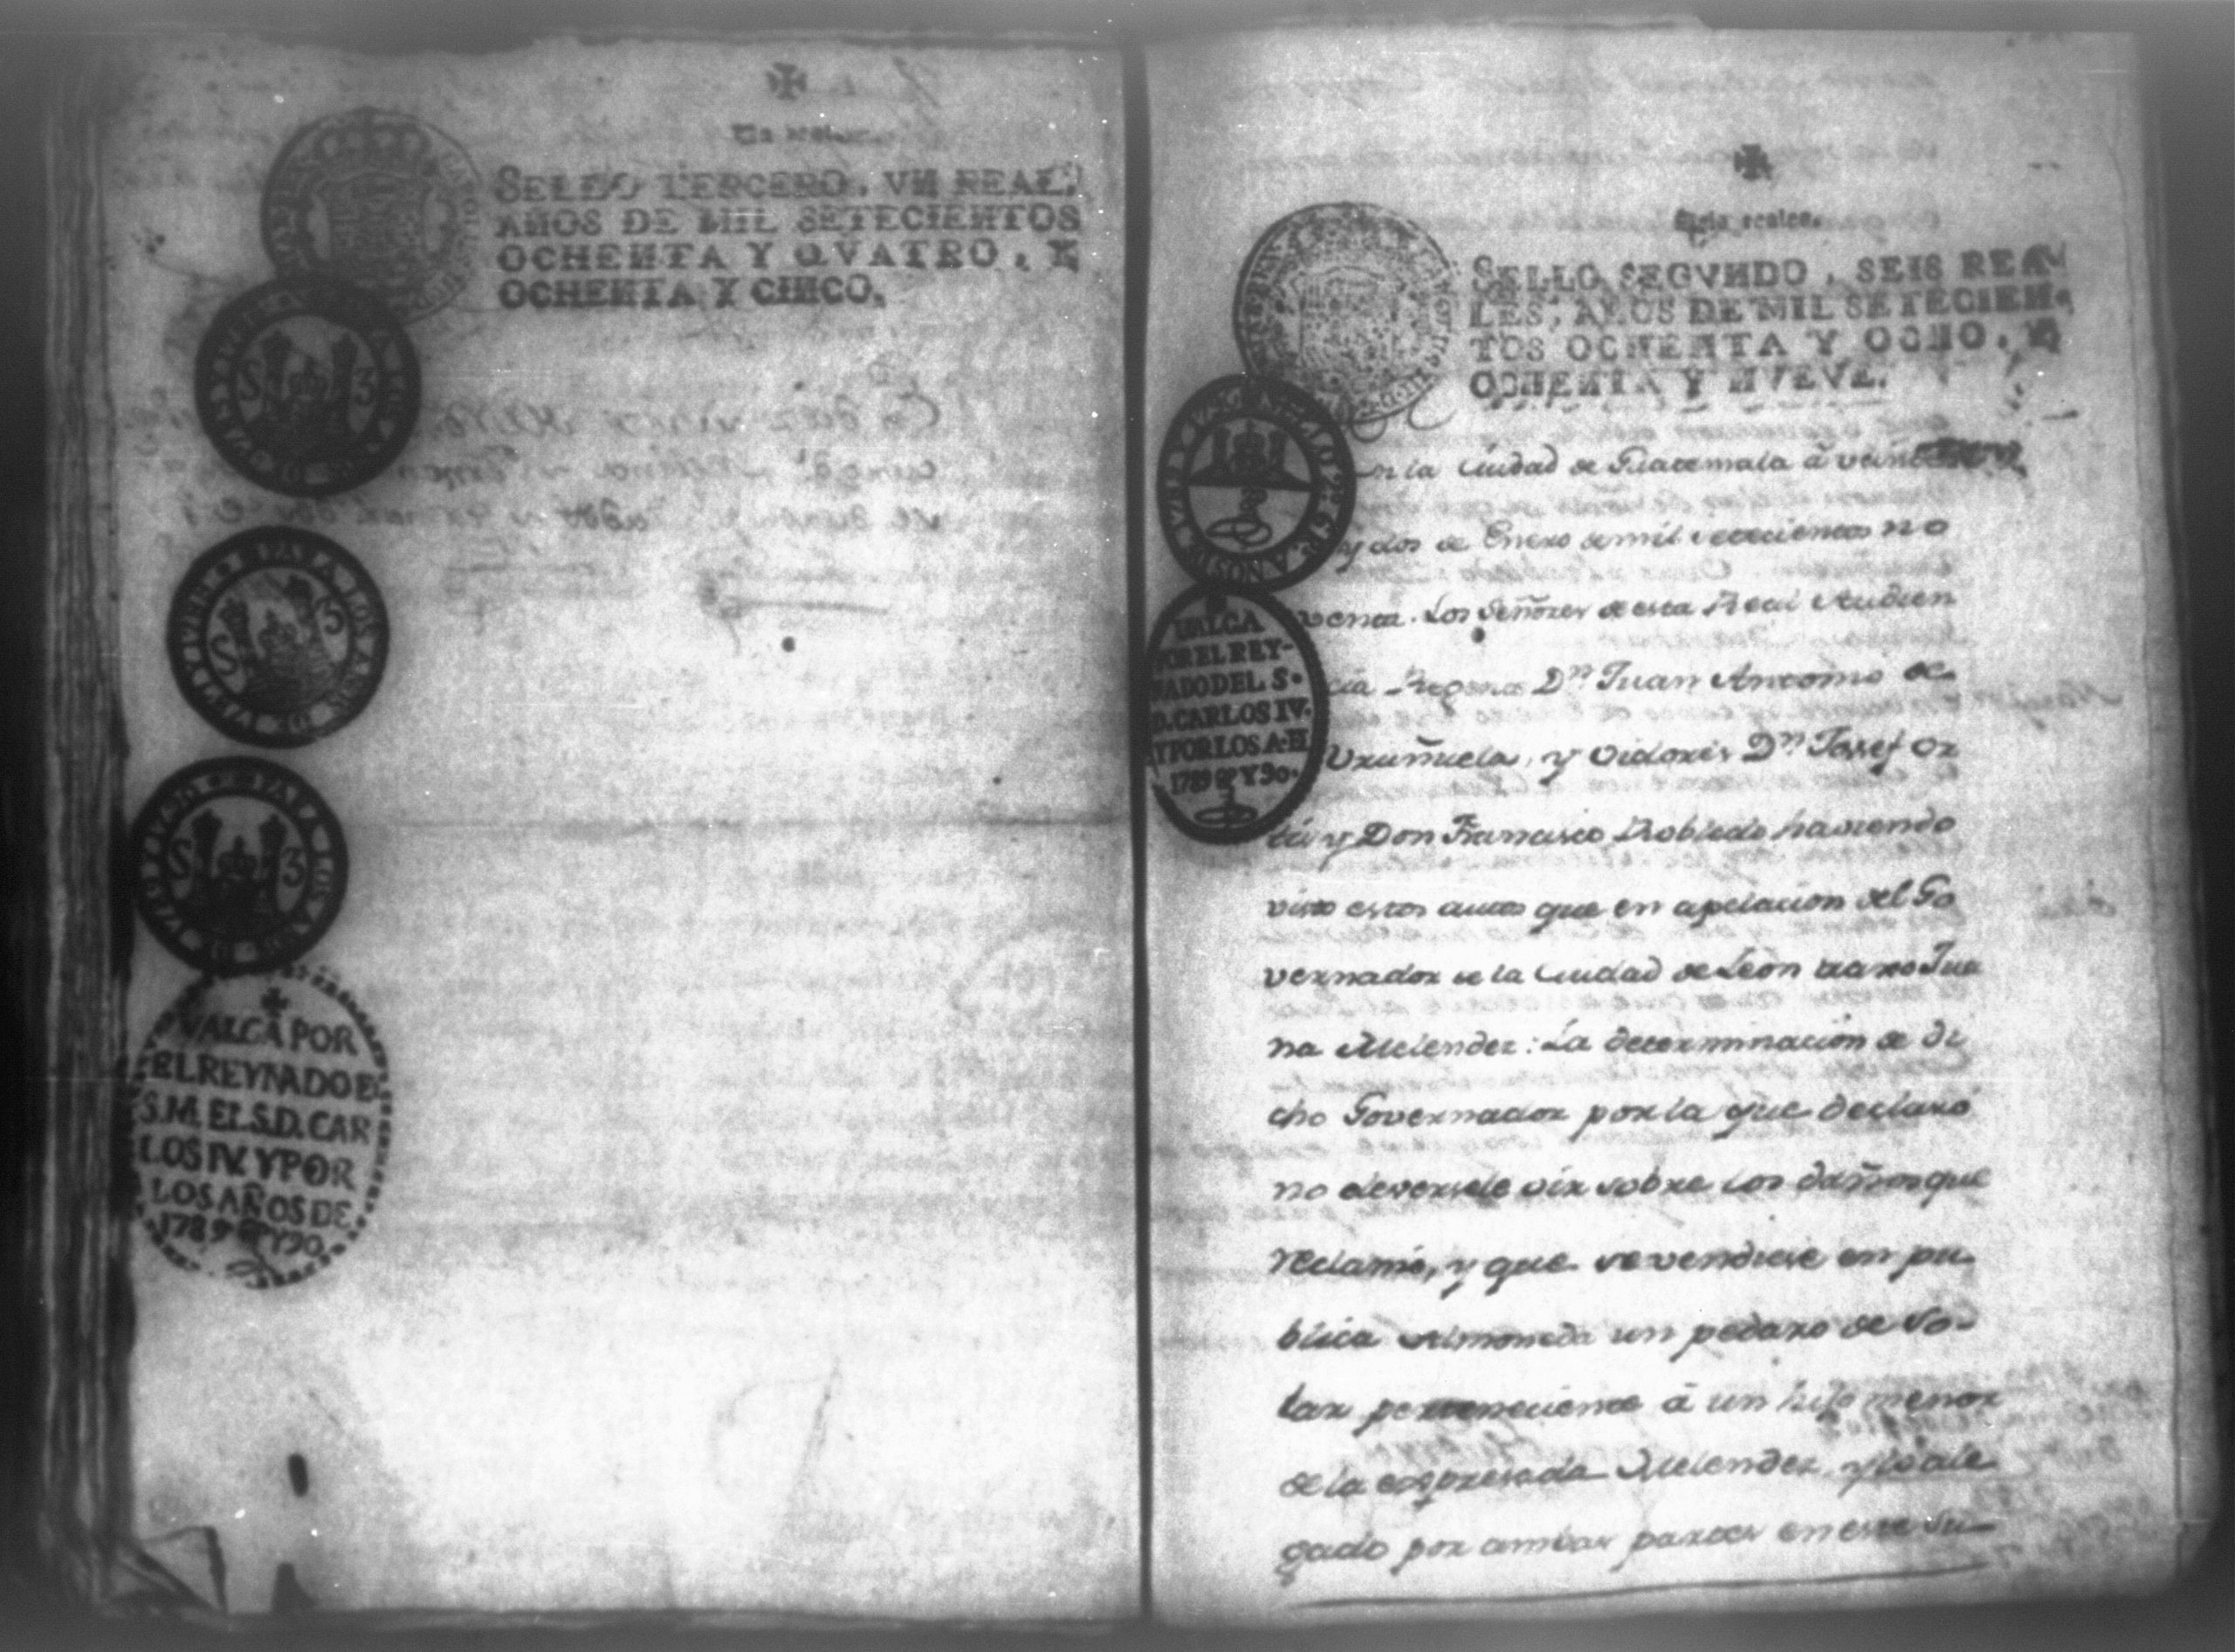 Un real.
SELLO TERCERO, VN REAL,
AÑOS DE MIL SETECIENTOS
OCHENTA Y QVATRO, Y
OCHENTA Y CINCO.
S 3
PARA LOS A
S 3
PARA LOS A
S 3
PARA LOS A
VALGA POR
EL REYNADO D
S.M. EL S.D. CAR
LOS IV. Y POR
LOS AÑOS DE
1789 Y 90.
Seis reales.
SELLO SEGVNDO, SEIS REA
LES, AÑOS DE MIL SETECIEN
TOS OCHENTA Y OCHO, Y
OCHENTA Y NVEVE.
VALGA
POR EL REY-
NADO DEL S.
D. CARLOS IV.
Y POR LOS A.
1789 Y 90.
En la Ciudad de Guatemala á veinte
y dos de Enero de mil setecientos no
venta. Los Señores de esta Real Audien
cia Regente Dn Juan Antonio de
Uruñuela, y Oidores Dn Josef Or
tiz y Don Francisco Robledo haviendo
visto estos autos que en apelacion del Go
vernador de la Ciudad de Leon traxo Jua
na Melendez: La determinacion de di
cho Governador por la que declaró
no deversele oir sobre los daños que
reclama, y que se vendiese en pu
blica Almoneda un pedazo de So-
lar perteneciente á un hijo menor
de la expresada Melendez, y lo ale
gado por ambas partes en este Ju-